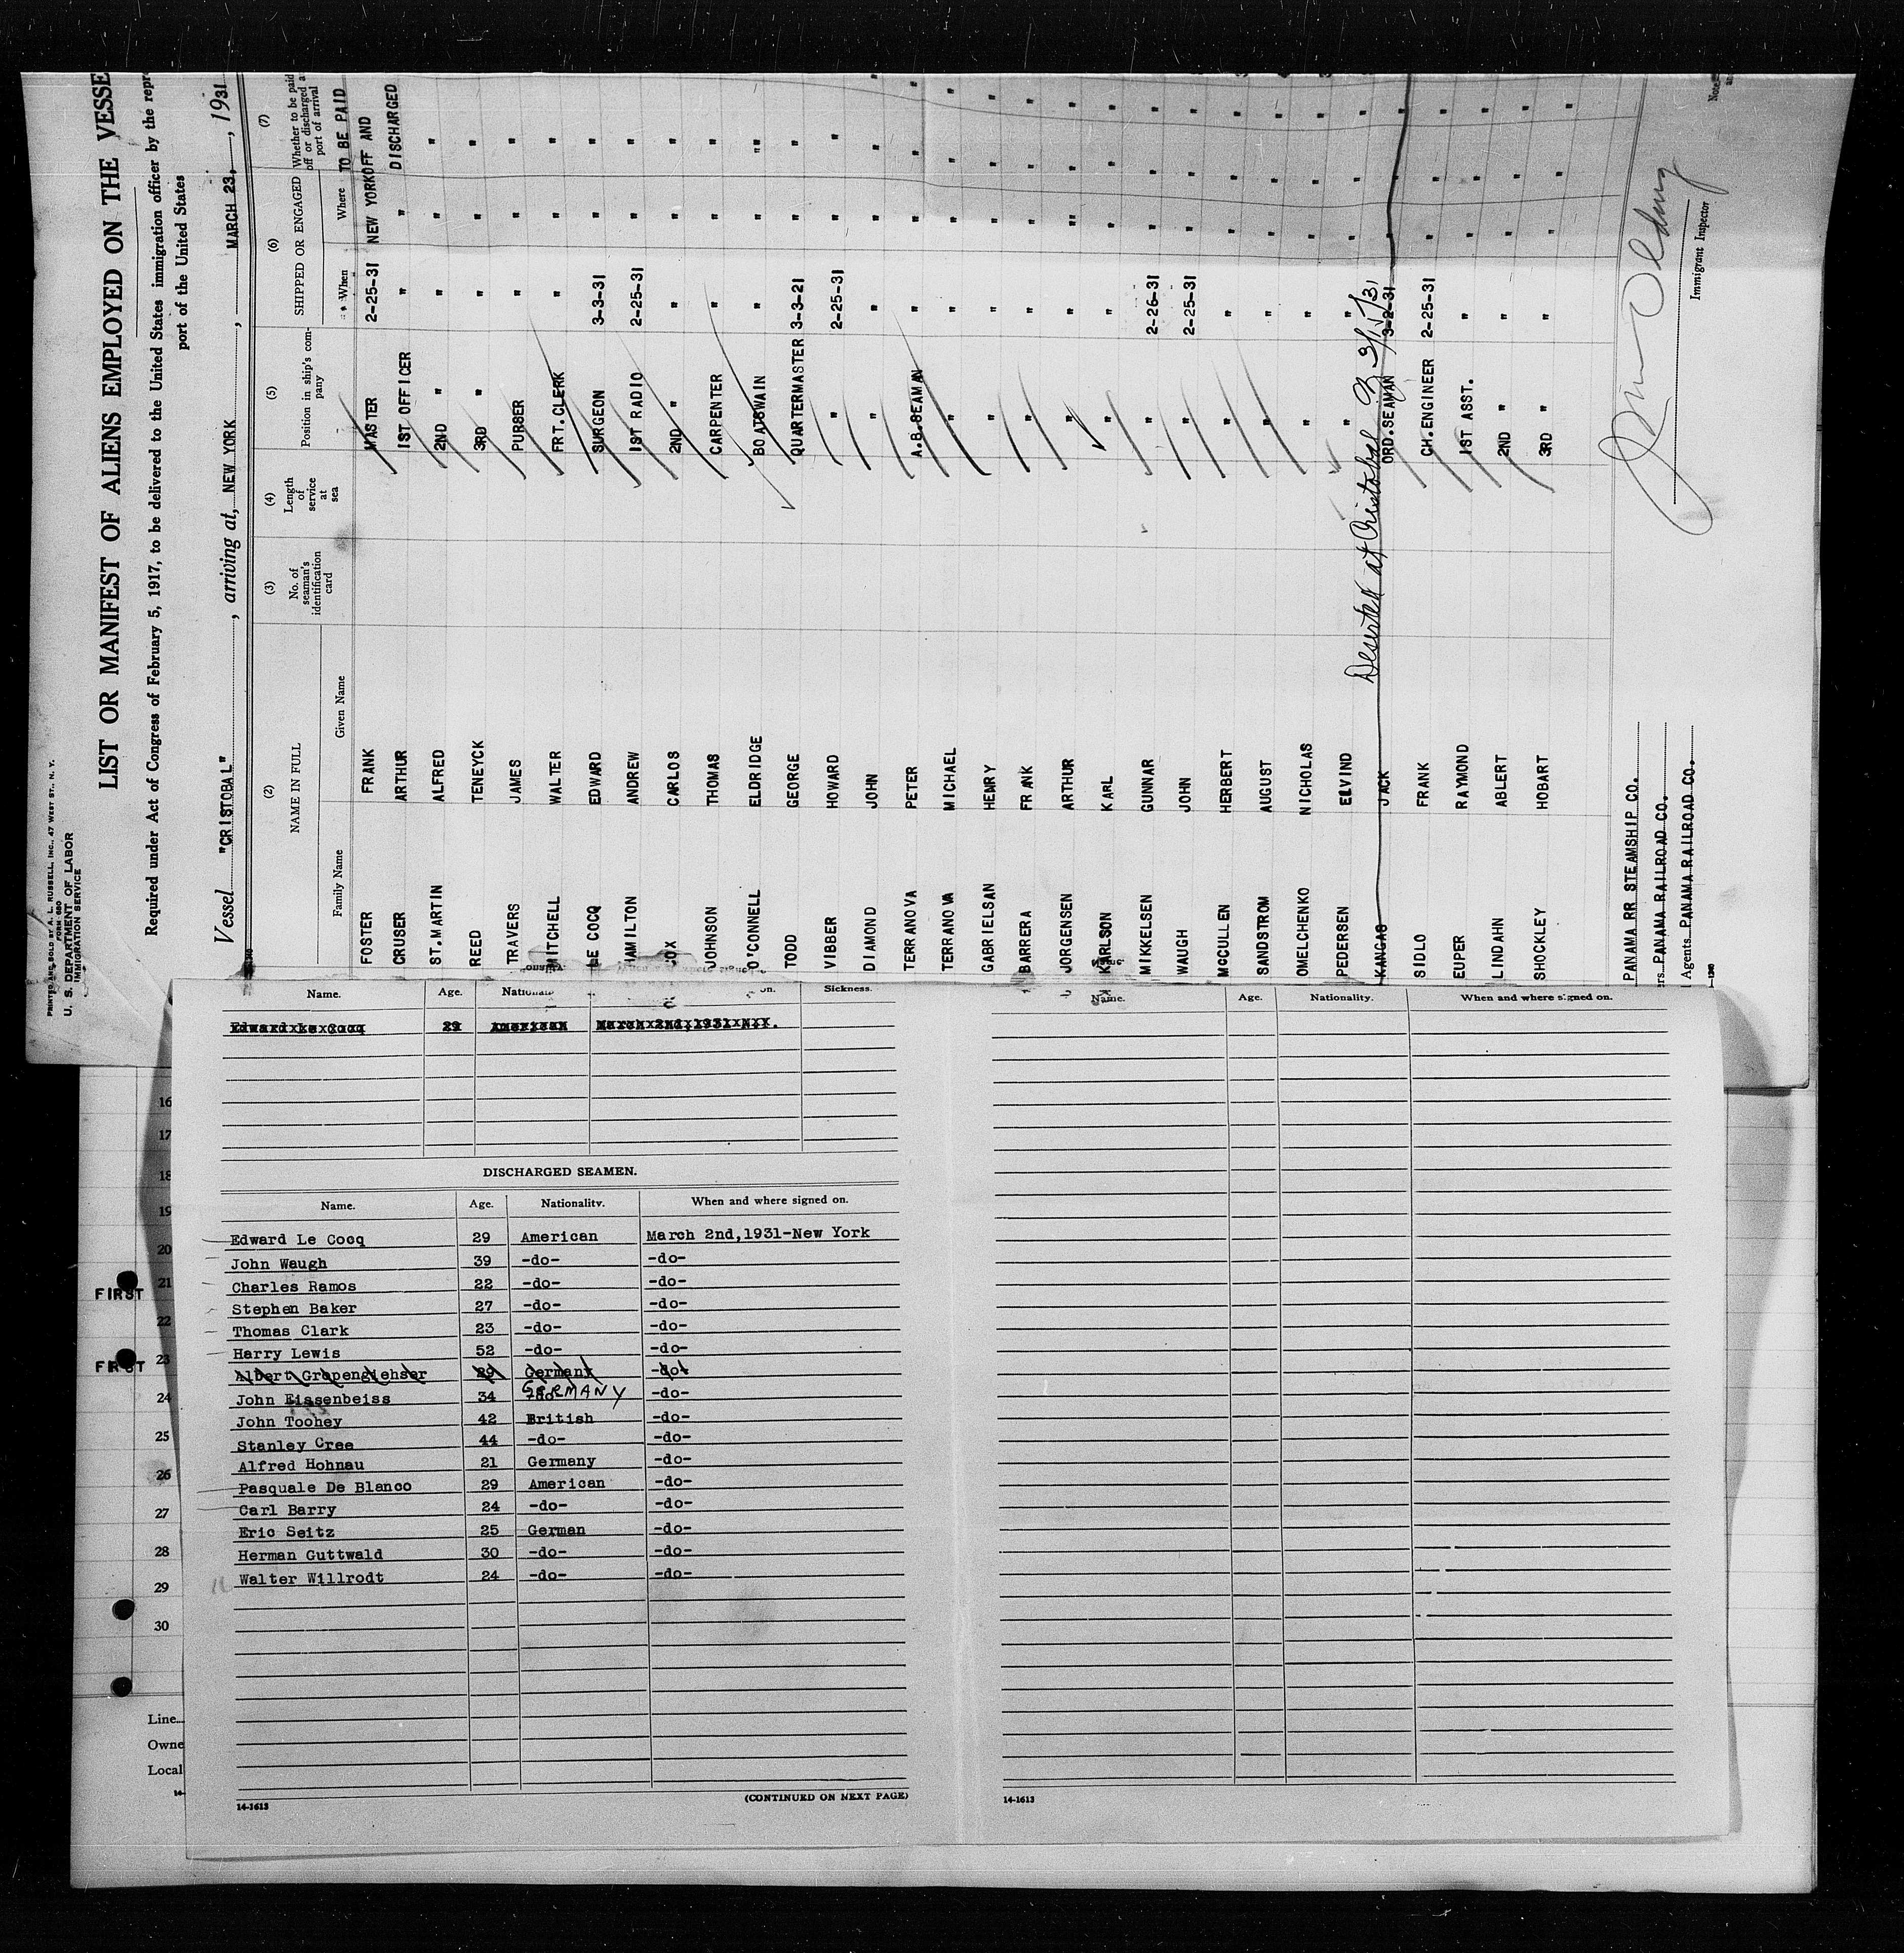 PRINTED AND SOLD BY A. L. RUSSELL, INC., 47 WEST ST., N. Y.
FORM 680
U. S. DEPARTMENT OF LABOR
IMMIGRATION SERVICE
LIST OR MANIFEST OF ALIENS EMPLOYED ON THE VESSE
Required under Act of Congress of February 5, 1917, to be delivered to the United States immigration officer by the repr
port of the United States
Vessel "CRISTOBAL", arriving at, NEW YORK, MARCH 23, 1931
(2) (3) (4) (5) (6) (7)
NAME IN FULL
Family Name Given Name
No. of seaman's identification card
Length of service at sea
Position in ship's company
SHIPPED OR ENGAGED
When Where
Whether to be paid off or discharged a port of arrival
TO BE PAID
FOSTER FRANK MASTER 2-25-31 NEW YORK OFF AND
CRUSER ARTHUR 1ST OFFICER " " DISCHARGED
ST.MARTIN ALFRED 2ND " " " "
REED TENEYCK 3RD " " " "
TRAVERS JAMES PURSER " " "
MITCHELL WALTER FRT.CLERK " " "
LE COCQ EDWARD SURGEON 3-3-31 " "
HAMILTON ANDREW 1ST RADIO 2-25-31 " "
COX CARLOS 2ND " " " "
JOHNSON THOMAS CARPENTER " " "
O'CONNELL ELDRIDGE BOATSWAIN " " "
TODD GEORGE QUARTERMASTER 3-3-21 " "
VIBBER HOWARD " 2-25-31 " "
DIAMOND JOHN " " " "
TERRANOVA PETER A.B.SEAMAN " " "
TERRANOVA MICHAEL " " " "
GABRIELSAN HENRY " " " "
BARRERA FRANK " " " "
JORGENSEN ARTHUR " " " "
KARLSON KARL " " " "
MIKKELSEN GUNNAR " 2-26-31 " "
WAUGH JOHN " 2-25-31 " "
McCULLEN HERBERT " " " "
SANDSTROM AUGUST " " " "
OMELCHENKO NICHOLAS " " " "
PEDERSEN EIVIND " " " "
Deserted at Cristobal CZ 3/15/31
KANGAS JACK ORD.SEAMAN 3-2-31 " "
SIDLO FRANK CH.ENGINEER 2-25-31 " "
EUPER RAYMOND 1ST ASST. " " "
LINDAHN ABLERT 2ND " " " "
SHOCKLEY HOBART 3RD " " " "
PANAMA RR STEAMSHIP CO.
ers PANAMA RAILROAD CO.
l Agents PANAMA RAILROAD CO.
Immigrant Inspector
Note
Name. Age. on. Sickness.
Edward Le Cocq 29 American March 2nd, 1931 N.Y.
DISCHARGED SEAMEN.
Name. Age. Nationality. When and where signed on.
Edward Le Cocq 29 American March 2nd,1931-New York
John Waugh 39 -do- -do-
Charles Ramos 22 -do- -do-
Stephen Baker 27 -do- -do-
Thomas Clark 23 -do- -do-
Harry Lewis 52 -do- -do-
Albert Gropengiehser 29 Germany -do-
John Eissenbeiss 34 GERMANY -do-
John Toohey 42 British -do-
Stanley Cree 44 -do- -do-
Alfred Hohnau 21 Germany -do-
Pasquale De Blanco 29 American -do-
Carl Barry 24 -do- -do-
Eric Seitz 25 German -do-
Herman Guttwald 30 -do- -do-
Walter Willrodt 24 -do- -do-
14-1613
(CONTINUED ON NEXT PAGE)
Name. Age. Nationality. When and where signed on.
14-1613
16
17
18
19
20
FIRST 21
22
FIRST 23
24
25
26
27
28
29
30
Line
Owne
Local
14-